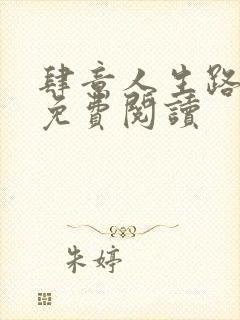 肆意人生路
免費閱讀
朱婷